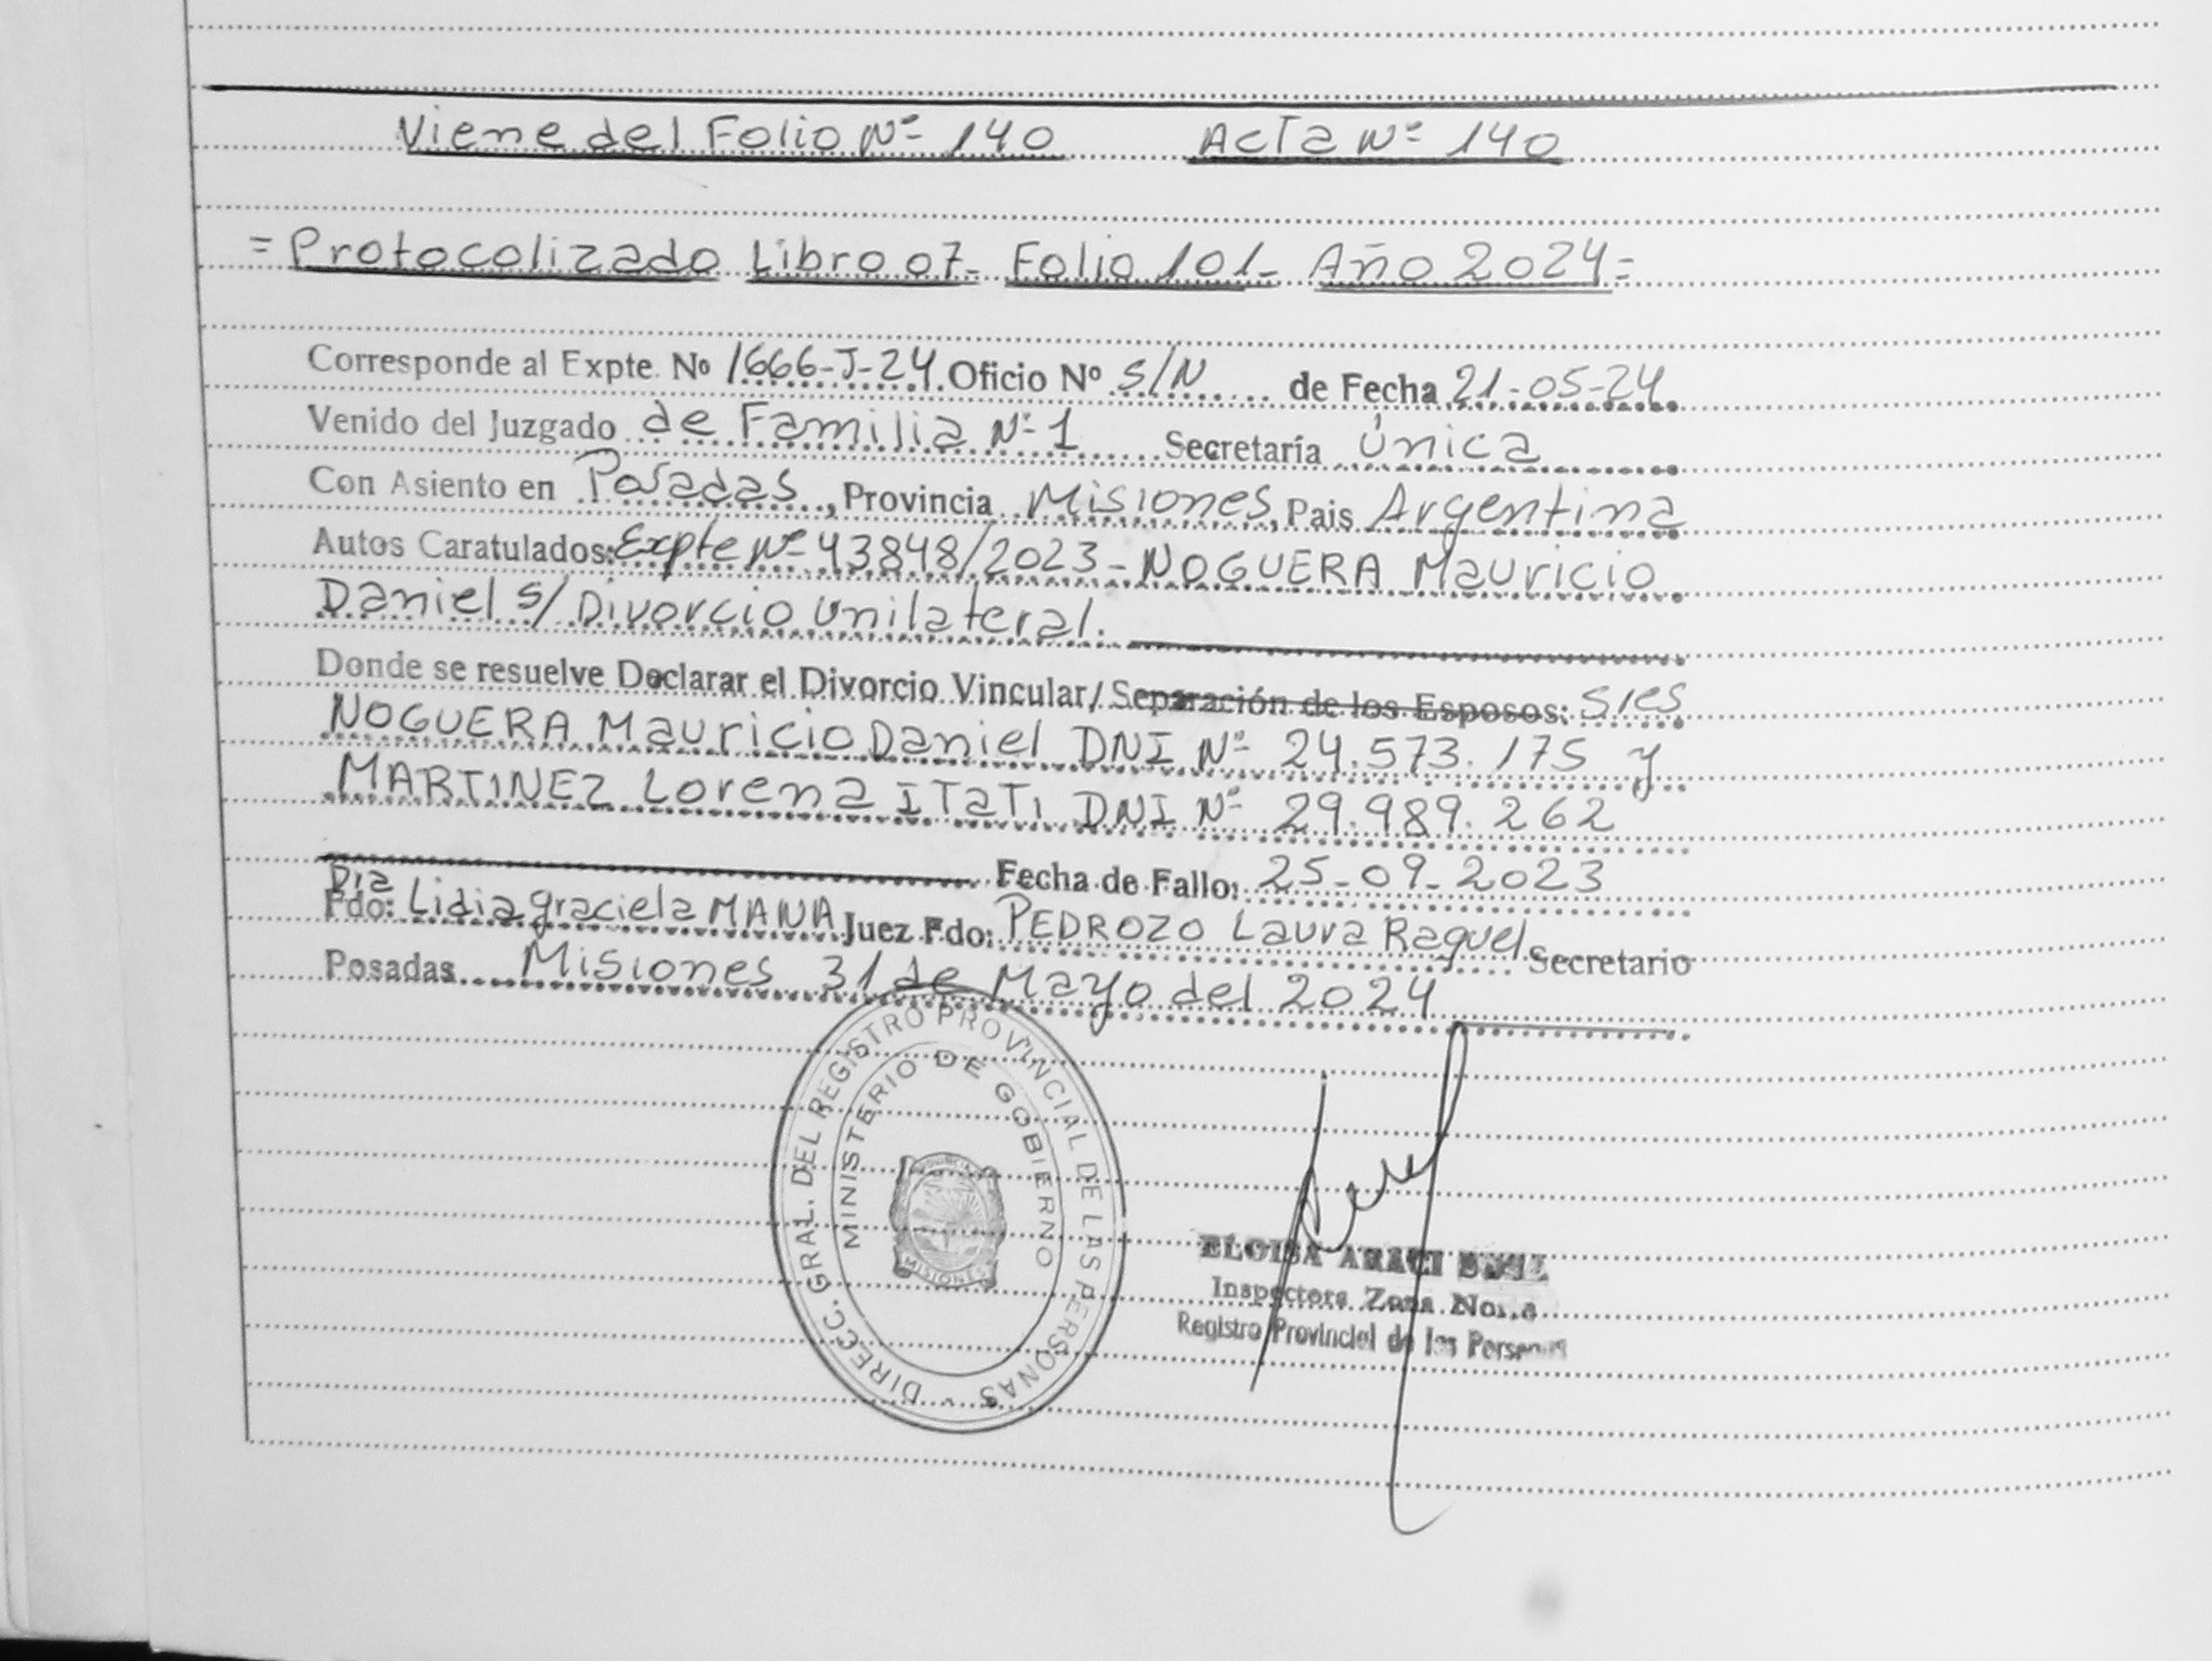 Viene del Folio Nº 140 Acta Nº 140
= Protocolizado Libro 07- Folio 101- Año 2024=
Corresponde al Expte. Nº 1666-J-24. Oficio Nº S/N de Fecha 21-05-24.
Venido del Juzgado de Familia Nº 1 Secretaría Única
Con Asiento en Posadas, Provincia Misiones, Pais Argentina
Autos Caratulados: Expte Nº 43848/2023 - NOGUERA Mauricio
Daniel s/ Divorcio Unilateral.
Donde se resuelve Declarar el Divorcio Vincular/ Separación de los Esposos: Sres
NOGUERA Mauricio Daniel DNI Nº 24.573.175 y
MARTINEZ Lorena ITATI DNI Nº 29.989.262
Fecha de Fallo: 25-09-2023
Dra
Fdo: Lidia graciela MANA Juez Fdo: PEDROZO Laura Raquel Secretario
Posadas Misiones 31 de Mayo del 2024
DIRECC. GRAL. DEL REGISTRO PROVINCIAL DE LAS PERSONAS -
MINISTERIO DE GOBIERNO
MISIONES
ELOISA ARACI
Inspectora Zona
Registro Provincial de las Personas